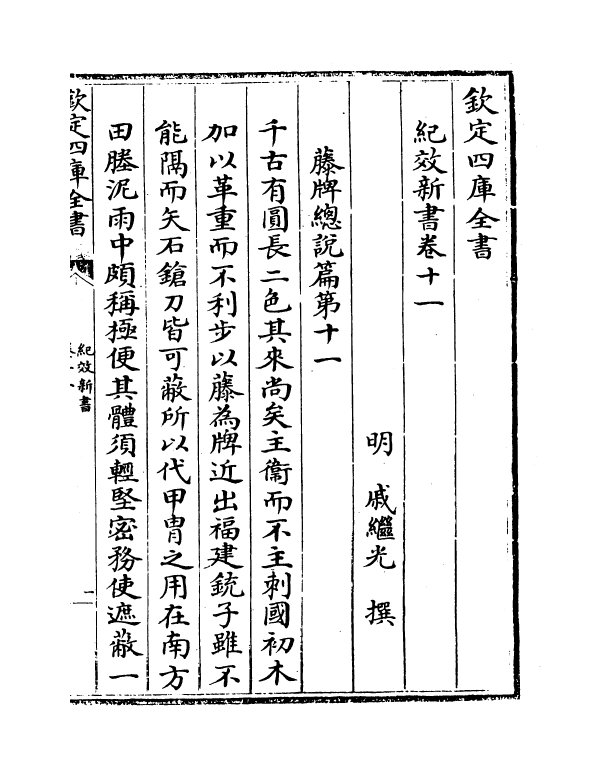 欽定四庫全書
紀效新書卷十一
明 戚繼光 撰
藤牌總說篇第十一
千古有圓長二色其來尚矣主衞而不主刺國初木
加以革重而不利步以藤為牌近出福建銃子雖不
能隔而矢石鎗刀皆可蔽所以代甲冑之用在南方
田塍泥雨中頗稱極便其體須輕堅密務使遮蔽一
欽定四庫全書
紀效新書
一